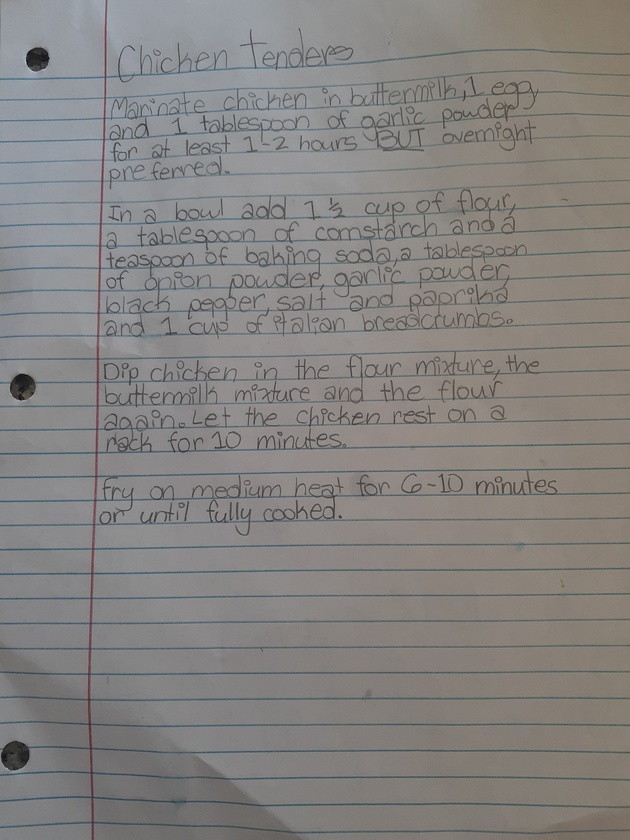 Chicken tenders
Marinate chicken in buttermilk, 1 egg
and 1 tablespoon of garlic powder
for at least 1-2 hours BUT overnight
preferred.
In a bowl add 1 ½ cup of flour,
a tablespoon of cornstarch and a
teaspoon of baking soda, a tablespoon
of onion powder, garlic powder,
black pepper, salt and paprika
and 1 cup of italian breadcrumbs.
Dip chicken in the flour mixture, the
buttermilk mixture and the flour
again. Let the chicken rest on a
rack for 10 minutes.
Fry on medium heat for 6-10 minutes
or until fully cooked.